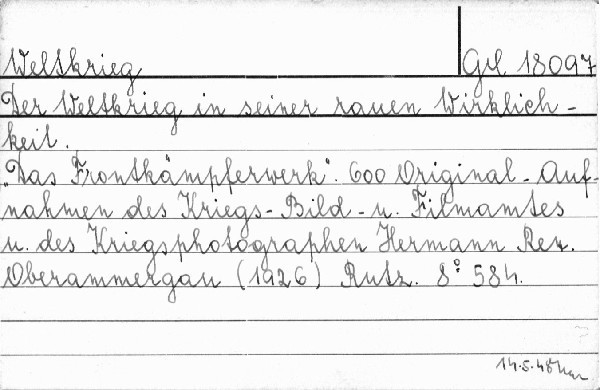 Weltkrieg Gd 18097
Der Weltkrieg in seiner rauen Wirklich-
keit.
„Das Frontkämpferwerk". 600 Original-Auf-
nahmen des Kriegs-Bild-u. Filmamtes
u. des Kriegsphotographen Hermann Rex.
Oberammergau (1926) Rutz. 8° 584.
14.5.48